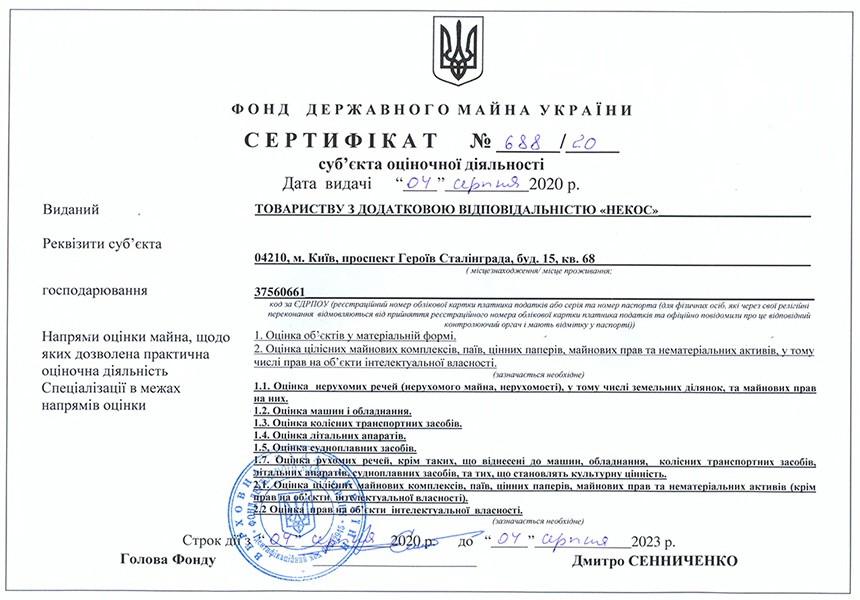 ФОНД ДЕРЖАВНОГО МАЙНА УКРАЇНИ
СЕРТИФІКАТ № 688 / 20
суб’єкта оціночної діяльності
Дата видачі “04” серпня 2020 р.
Виданий ТОВАРИСТВУ З ДОДАТКОВОЮ ВІДПОВІДАЛЬНІСТЮ «НЕКОС»
Реквізити суб’єкта
04210, м. Київ, проспект Героїв Сталінграда, буд. 15, кв. 68
( місцезнаходження/ місце проживання;
господарювання 37560661
код за ЄДРПОУ (реєстраційний номер облікової картки платника податків або серія та номер паспорта (для фізичних осіб, які через свої релігійні
переконання відмовляються від прийняття реєстраційного номера облікової картки платника податків та офіційно повідомили про це відповідний
контролюючий орган і мають відмітку у паспорті))
Напрями оцінки майна, щодо
яких дозволена практична
оціночна діяльність
1. Оцінка об’єктів у матеріальній формі.
2. Оцінка цілісних майнових комплексів, паїв, цінних паперів, майнових прав та нематеріальних активів, у тому
числі прав на об’єкти інтелектуальної власності.
(зазначається необхідне)
Спеціалізації в межах
напрямів оцінки
1.1. Оцінка нерухомих речей (нерухомого майна, нерухомості), у тому числі земельних ділянок, та майнових прав
на них.
1.2. Оцінка машин і обладнання.
1.3. Оцінка колісних транспортних засобів.
1.4. Оцінка літальних апаратів.
1.5. Оцінка судноплавних засобів.
1.7. Оцінка рухомих речей, крім таких, що віднесені до машин, обладнання, колісних транспортних засобів,
літальних апаратів, судноплавних засобів, та тих, що становлять культурну цінність.
2.1. Оцінка цілісних майнових комплексів, паїв, цінних паперів, майнових прав та нематеріальних активів (крім
прав на об’єкти інтелектуальної власності).
2.2 Оцінка прав на об’єкти інтелектуальної власності.
(зазначається необхідне)
Строк дії з “04” серпня 2020 р. до “04” серпня 2023 р.
Голова Фонду Дмитро СЕННИЧЕНКО